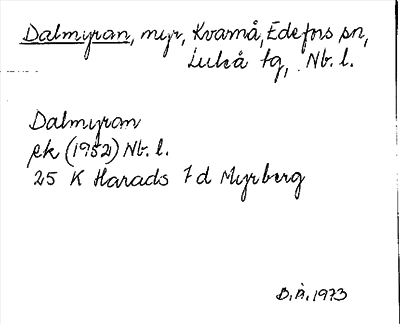 Dalmyran, myr, Kvarnå, Edefors sn,
Luleå tg, Nb. l.
Dalmyran
ek (1952) Nb. l.
25 K Harads 7 d Myrberg
B. Å. 1973